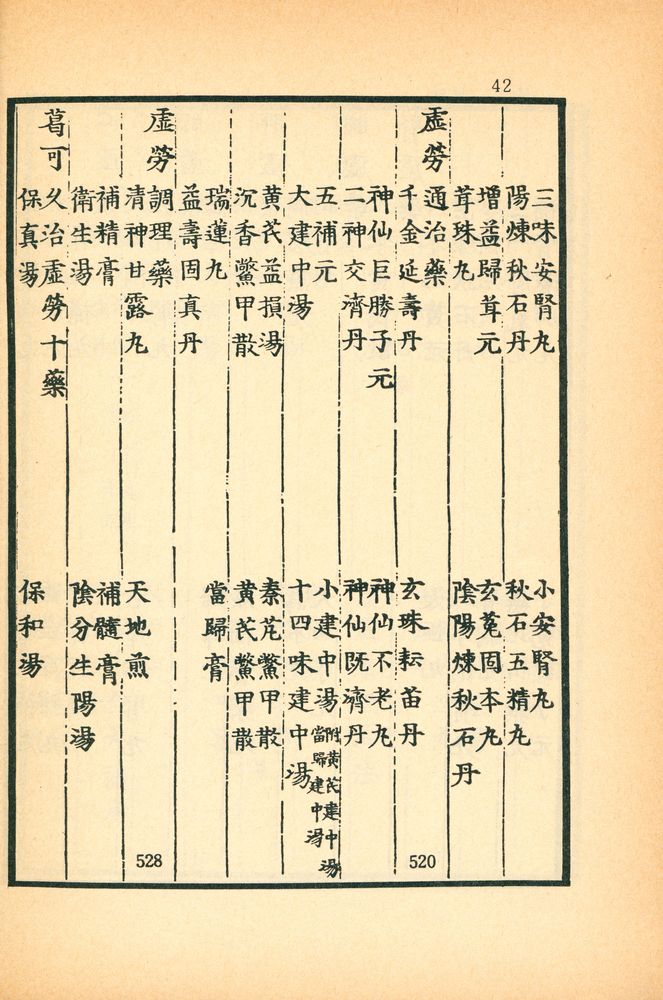 42
三味安腎丸 小安腎丸
陽煉秋石丹 秋石五精丸
增益歸茸元 玄菟固本丸
茸珠丸 陰陽煉秋石丹
虛勞通治藥 520
千金延壽丹 玄珠耘苗丹
神仙巨勝子元 神仙不老丸
二神交濟丹 神仙既濟丹
五補元 小建中湯 附黃芪建中湯 當歸建中湯
大建中湯 十四味建中湯
黃芪益損湯 秦艽鱉甲散
沉香鱉甲散 黃芪鱉甲散
瑞蓮丸 當歸膏
益壽固真丹
虛勞調理藥 528
清神甘露丸 天地煎
補精膏 補髓膏
衛生湯 陰分生陽湯
葛可久治虛勞十藥
保真湯 保和湯